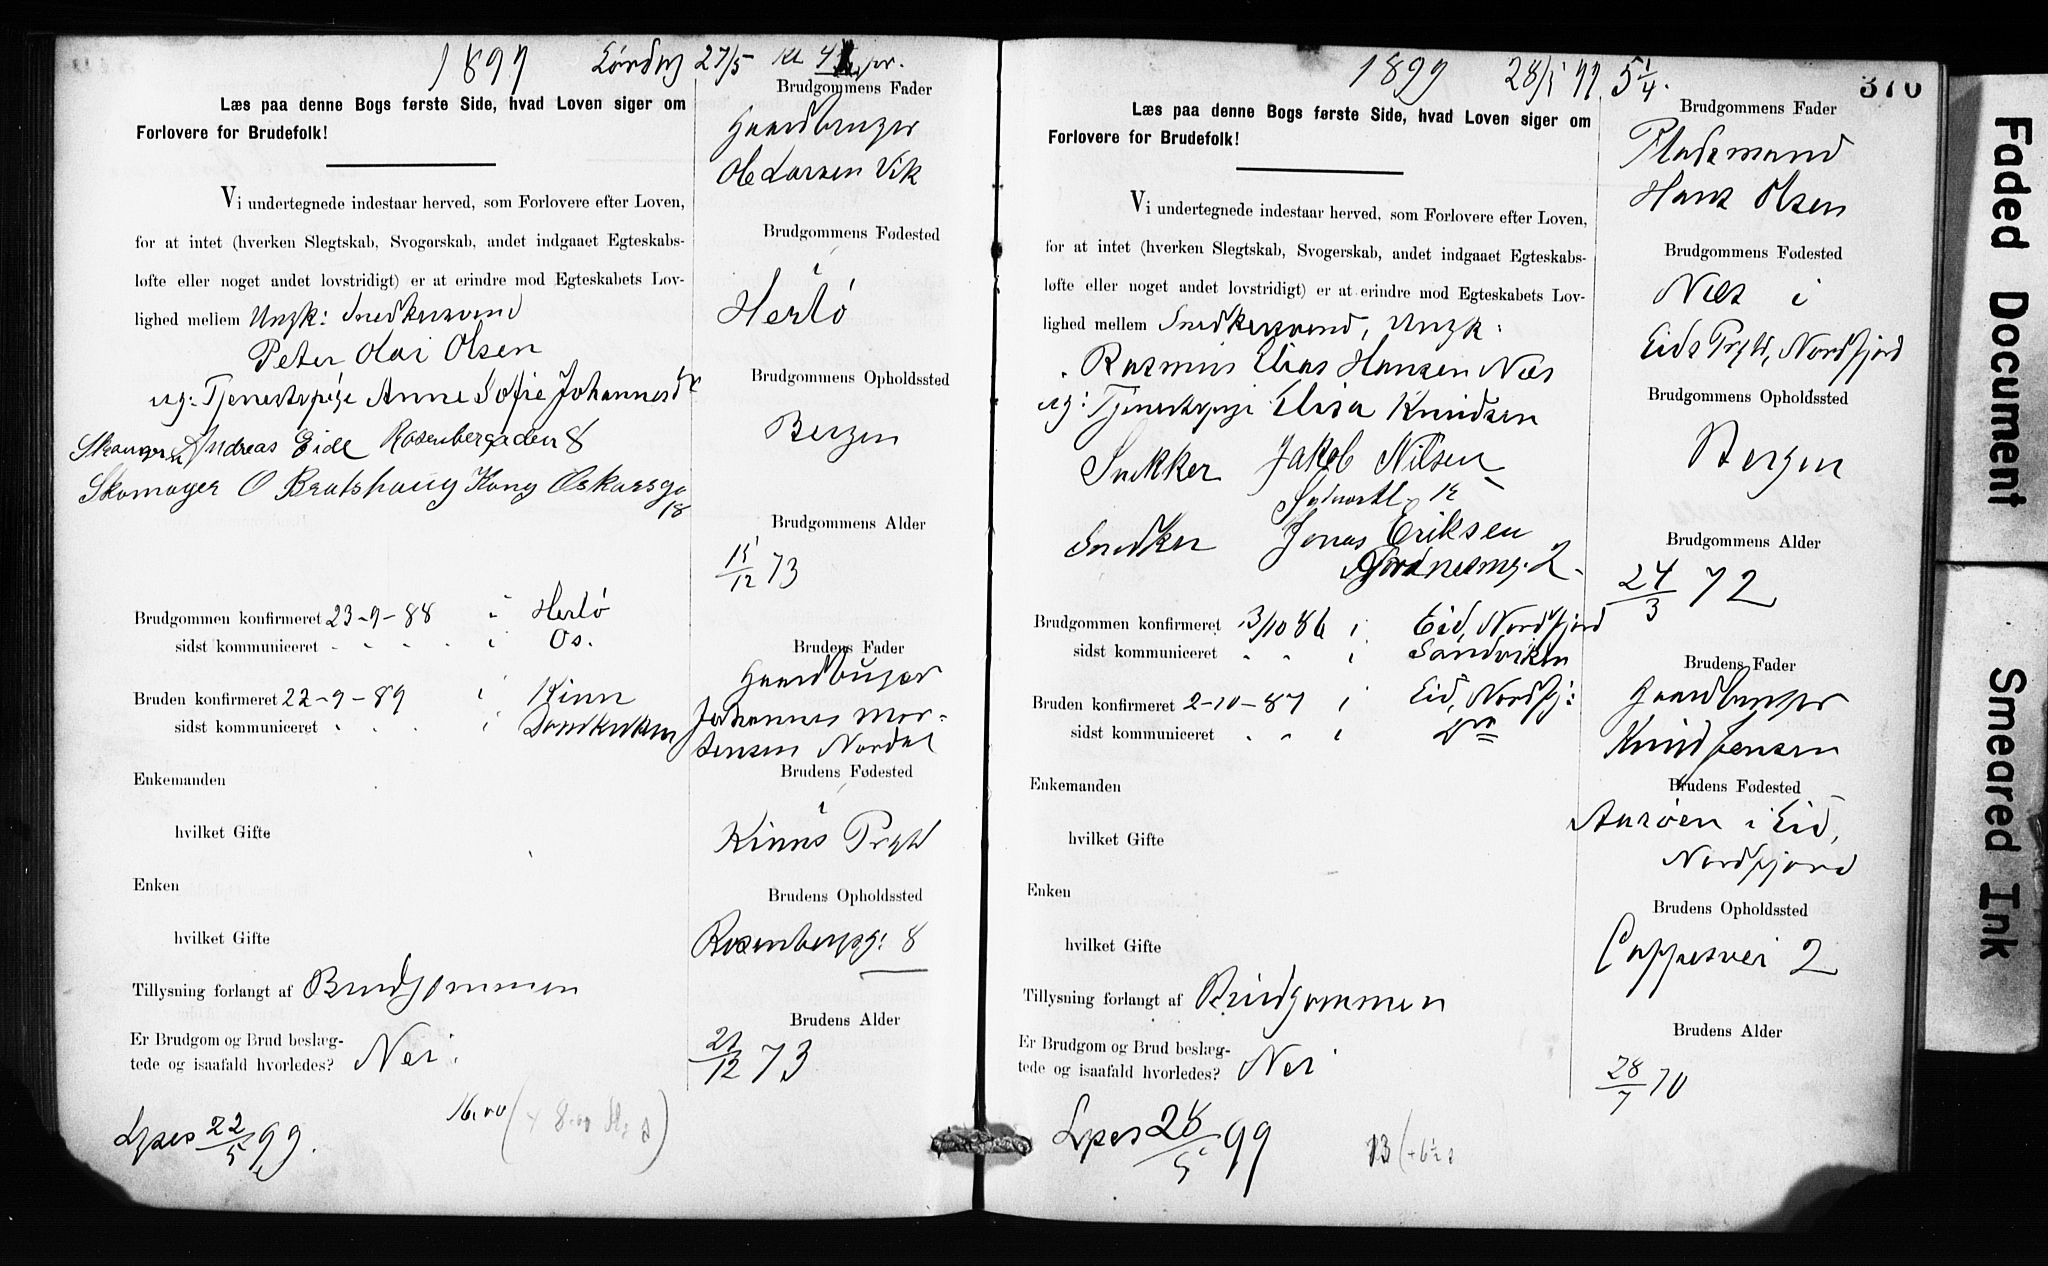 1899 Lördag 27/5 Kl 4
Læs paa denne Bogs første Side, hvad Loven siger om
Forlovere for Brudefolk!
Vi undertegnede indestaar herved, som Forlovere efter Loven,
for at intet (hverken Slegtskab, Svogerskab, andet indgaaet Egteskabs-
løfte eller noget andet lovstridigt) er at erindre mod Egteskabets Lov-
lighed mellem Ungk: Snedkersvend
Peter Olai Olsen
og: Tjenestepige Anne Sofie Johannesd
Andreas Eide Rosenbergaden 8
Skomager O Bratshaug Kong Oskarsga
18
Brudgommen konfirmeret 23-9-88 i Herlö
sidst kommuniceret i Os.
Bruden konfirmeret 22-9-89 i Kinn
sidst kommuniceret i Domkirken
Enkemanden
hvilket Gifte
Enken
hvilket Gifte
Tillysning forlangt af Brudgommen
Er Brudgom og Brud beslæg-
tede og isaafald hvorledes? Nei.
Lyses 22/5 99.
16.00
Brudgommens Fader
Gaardbruger
Ole Larsen Vik
Brudgommens Fødested
i
Herlö
Brudgommens Opholdssted
Bergen
Brudgommens Alder
15/12 73
Brudens Fader
Gaardbruger
Johannes Mor-
tensen Nordal
Brudens Fødested
i
Kinns Prgld
Brudens Opholdssted
Rosenbergsg: 8
Brudens Alder
/12 73
1899 28/5 99 5 1/4.
370
Læs paa denne Bogs første Side, hvad Loven siger om
Forlovere for Brudefolk!
Vi undertegnede indestaar herved, som Forlovere efter Loven,
for at intet (hverken Slegtskab, Svogerskab, andet indgaaet Egteskabs-
løfte eller noget andet lovstridigt) er at erindre mod Egteskabets Lov-
lighed mellem Snedkersvend, Ungk:
Rasmus Elias Hansen Næs
og: Tjenestepige Elisa Knudsen
Snekker Jakob Nilsen
Snedker Jonas Eriksen
Nordnesveg. 2
Brudgommen konfirmeret 3/10 86 i Eid, Nordfjord
sidst kommuniceret " " i Sandviken
Bruden konfirmeret 2-10-87 i Eid, Nordfj:
sidst kommuniceret " " i do
Enkemanden
hvilket Gifte
Enken
hvilket Gifte
Tillysning forlangt af Brudgommen
Er Brudgom og Brud beslæg-
tede og isaafald hvorledes? Nei
Lyses 28/5 99
13
Brudgommens Fader
Pladsmand
Hans Olsen
Brudgommens Fødested
Næs i
Eids Prgld, Nordfjord
Brudgommens Opholdssted
Bergen
Brudgommens Alder
24/3 72
Brudens Fader
Gaardbruger
Knud Jensen
Brudens Fødested
i Eid,
Nordfjord
Brudens Opholdssted
Cappesvei 2
Brudens Alder
28/7 70
Faded Document
Smeared Ink